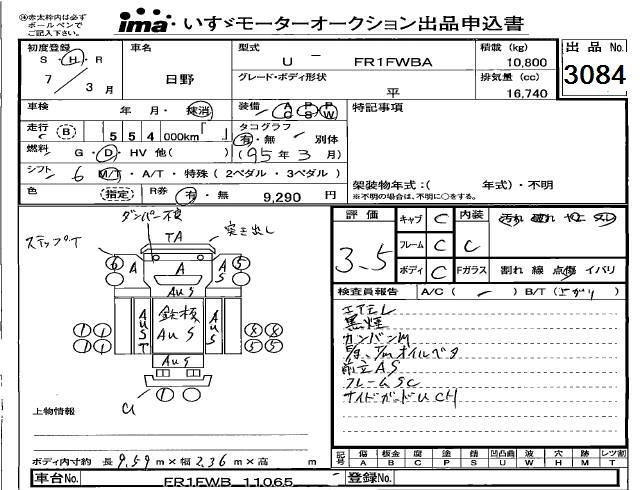 ④赤太枠内は必ず
ボールペンで
ご記入下さい。
ima いすゞモーターオークション出品申込書
初度登録 S・H・R 7／3月
車名 日野
型式 U － FR1FWBA
グレード・ボディ形状 平
積載 (kg) 10,800
排気量 (cc) 16,740
出品No.
3084
車検 年 月・抹消
装備 AC PS PW
特記事項
走行 C B 554 000km「 」
タコグラフ 有・無 別体 ('95年3月)
燃料 G・D・HV 他( )
シフト 6 M/T・A/T・特殊 (2ペダル・3ペダル)
架装物年式:( 年式)・不明
※不明の場合は、不明に○をする。
色 指定 R券 有・無 9,290 円
評価 3.5
キャブ C
フレーム C
ボディ C
内装 C
汚れ 破れ ヤケ スレ
Fガラス 割れ 線 点傷 イバリ
検査員報告 A/C ( ー ) B/T (さがり)
エイモレ
黒煙
カンバンM
E/g、T/mオイルベタ
前立AS
フレームSC
サイドガードUCH
ダンパー不良
ステップT
TA
突き出し
6 A A AS 5
AUS
1 1 AUST 鉄板 AUS AUS 8 8
1 1 5 5
AUS
U 1
上物情報
ボディ内寸約 長 9.59m×幅 2.36m×高 m
記号 傷A 板金B 腐C 塗P 錆S 凹凸曲U 波W 穴H 跡M レツ割T
車台No. FR1FWB 11065
登録No.